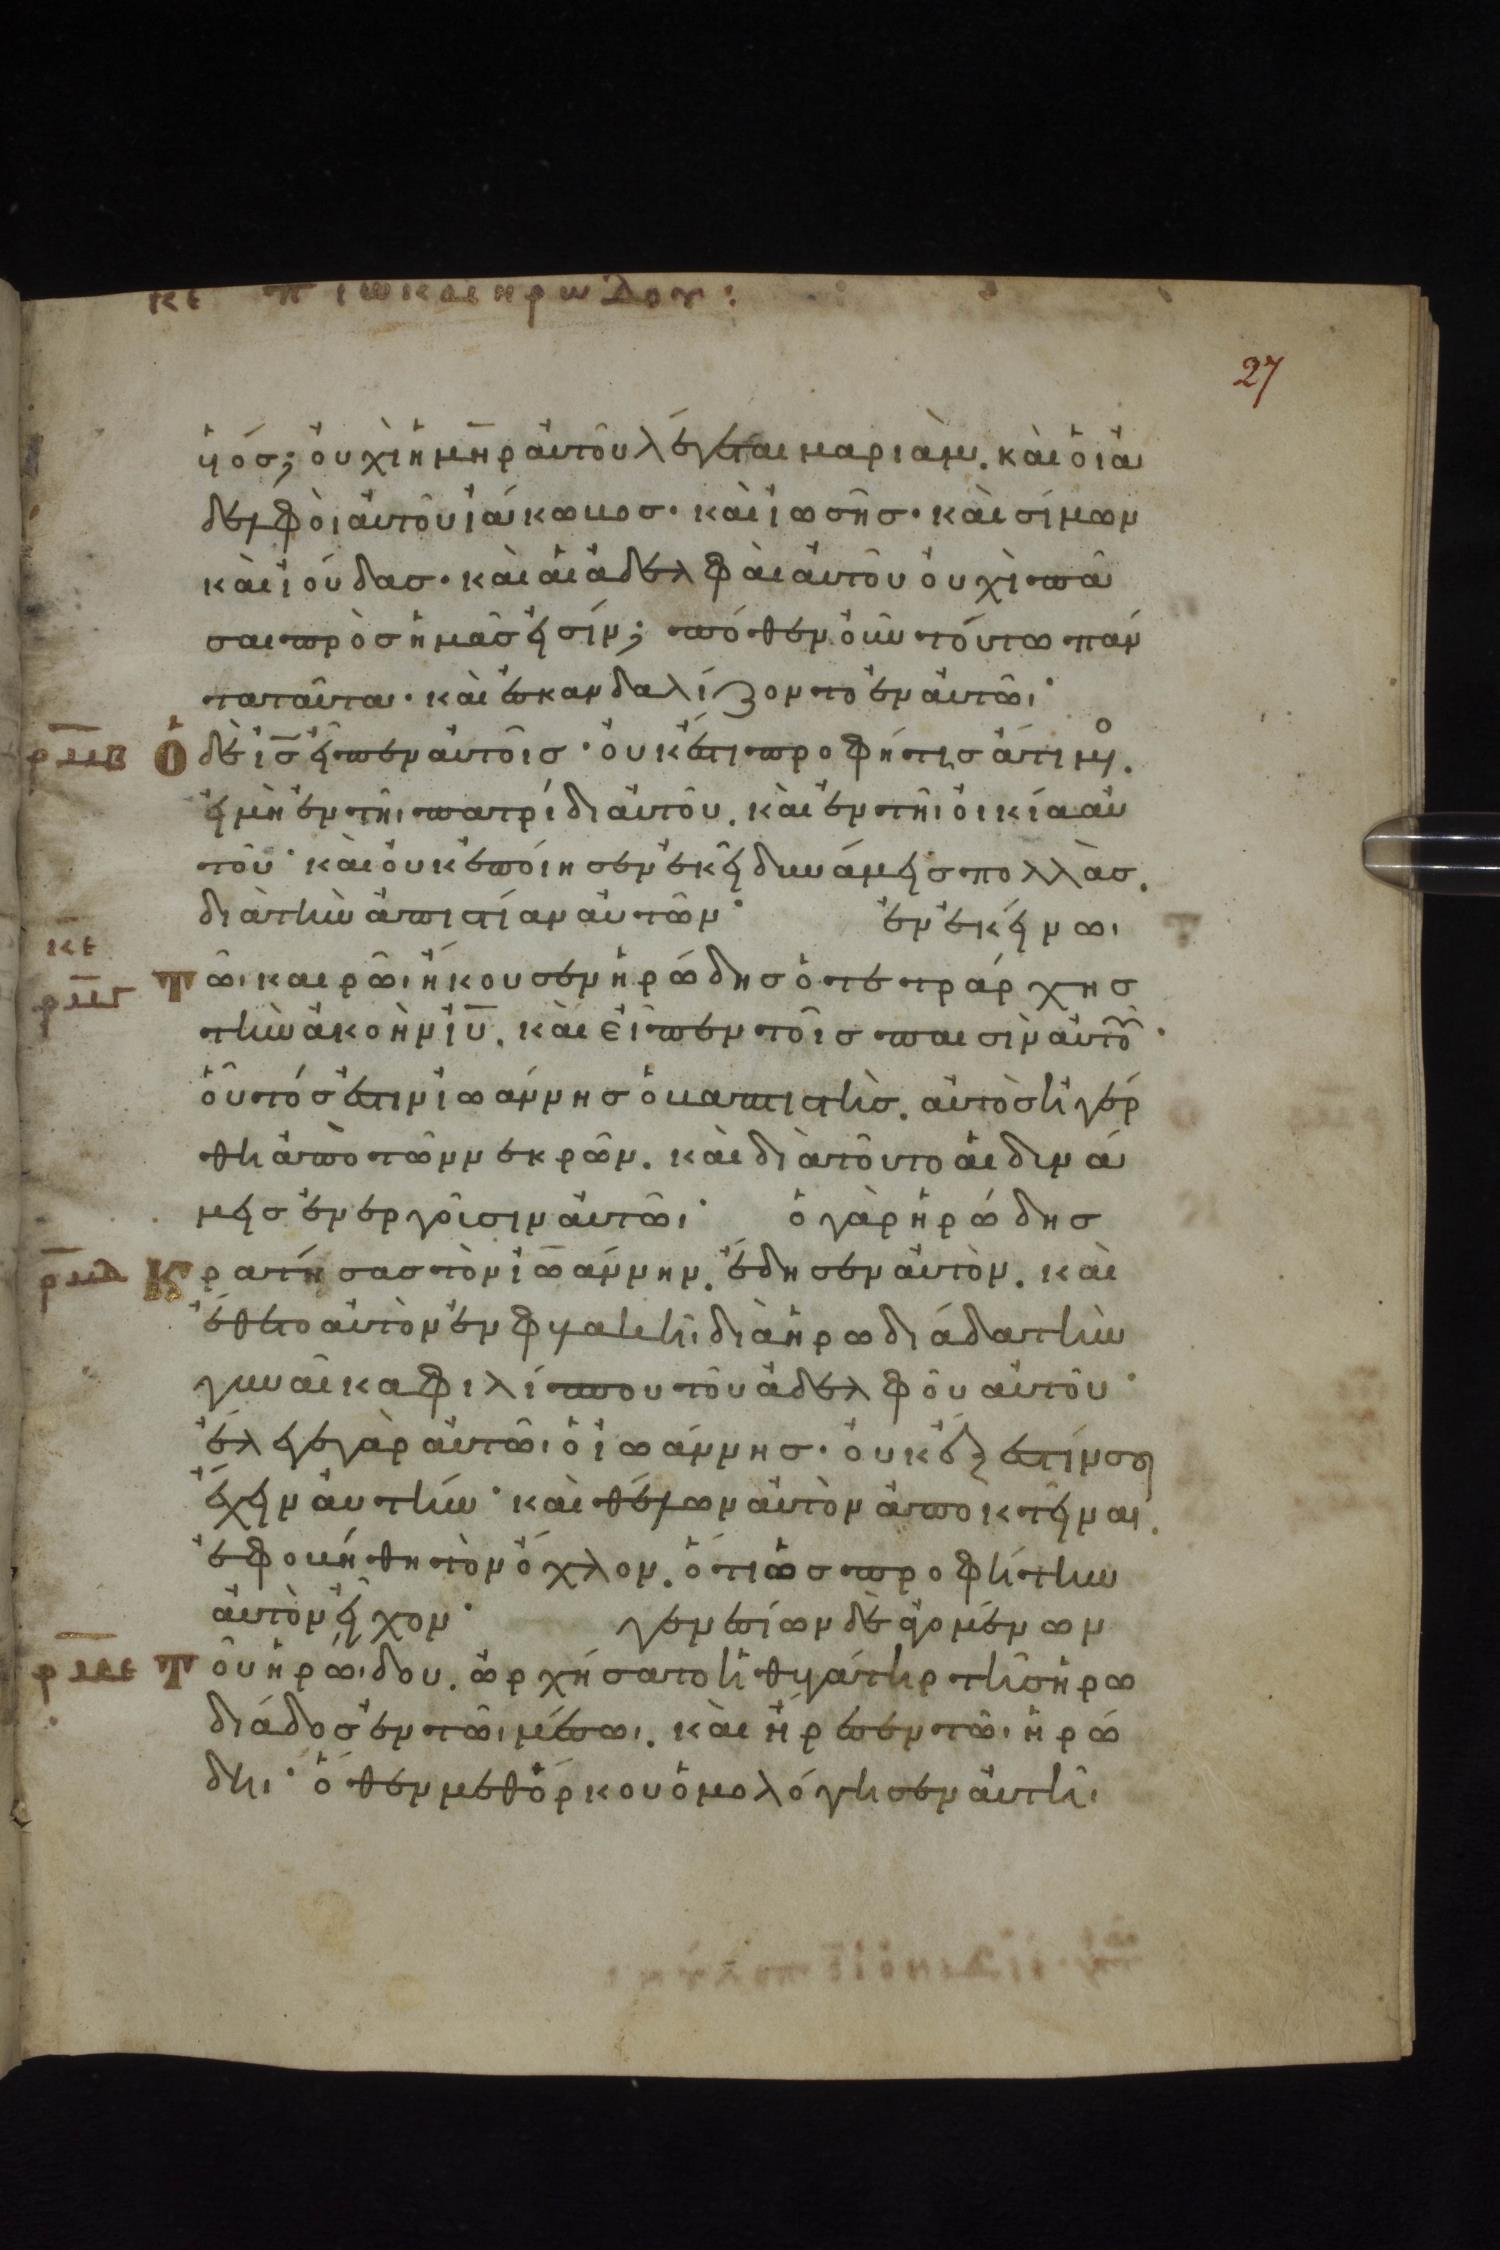 κε π ιω και ηρωδου:
27
ὑός; ὀυχὶ ἡ μ̅η̅ρ ἀυτοῦ λέγεται μαριὰμ. καὶ ὁι ἀ
δελφὸι ἀυτοῦ ἰάκωβος· καὶ ἰωσῆς· καὶ σίμων
καὶ ἰούδας· καὶ ἁι ἀδελφὰι ἀυτοῦ ὀυχὶ πᾶ
σαι πρὸς ἡμᾶς ἐισίν; πόθεν ὀῦν τούτω πάν
τα ταῦτα· καὶ ἐσκανδαλίζοντο ἐν ἀυτῶι·
ρμβ Ὁ δὲ ι̅ς̅ ἐῖπεν ἀυτοῖς· ὀυκ ἔστι προφήτης ἄτιμο.
ἐι μὴ ἐν τῆι πατρίδι ἀυτοῦ. καὶ ἐν τῆι ὀικία ἀυ
τοῦ· καὶ ὀυκ ἐποίησεν ἐκεῖ δυνάμεις πολλὰς.
διὰ τὴν ἀπιστίαν ἀυτῶν· ἐν ἐκείνωι
κε
ρμγ Τῶι καιρῶι ἤκουσεν ἡρώδης ὁ τετράρχης
τὴν ἀκοὴν ι̅υ̅. καὶ εἶπεν τοῖς παισὶν ἀυτοῦ·
ὁῦτός ἐστιν ἰωάννης ὁ βαπτιστὴς. ἀυτὸς ἠγέρ
θη ἀπὸ τῶν νεκρῶν. καὶ διὰ τοῦτο ἁι δυνά
μεις ἐνεργοῖσιν ἀυτῶι· ὁ γὰρ ἡρώδης
ρμδ Κρατήσας τὸν ἰωάννην. ἔδησεν ἀυτὸν. καὶ
ἔθετο ἀυτὸν ἐν φυλακῆι διὰ ἡρωδιάδα τὴν
γυναῖκα φιλίππου τοῦ ἀδελφοῦ ἀυτοῦ·
ἔλεγε γὰρ ἀυτῶι ὁ ἰωάννης· ὀυκ ἔξεστίν σοι
ἔχειν ἀυτήν· καὶ θέλων ἀυτὸν ἀποκτεῖναι.
ἐφοβήθη τὸν ὄχλον. ὅτι ὡς προφήτην
ἀυτὸν ἐῖχον· γενεσίων δὲ ἀγομένων
ρμε Τοῦ ἡρώιδου. ὠρχήσατο ἡ θυγάτηρ τῆς ἡρω
διάδος ἐν τῶι μέσωι. καὶ ἤρεσεν τῶι ἡρώ
δηι· ὅθεν μεθ ὅρκου ὁμολόγησεν ἀυτῆι